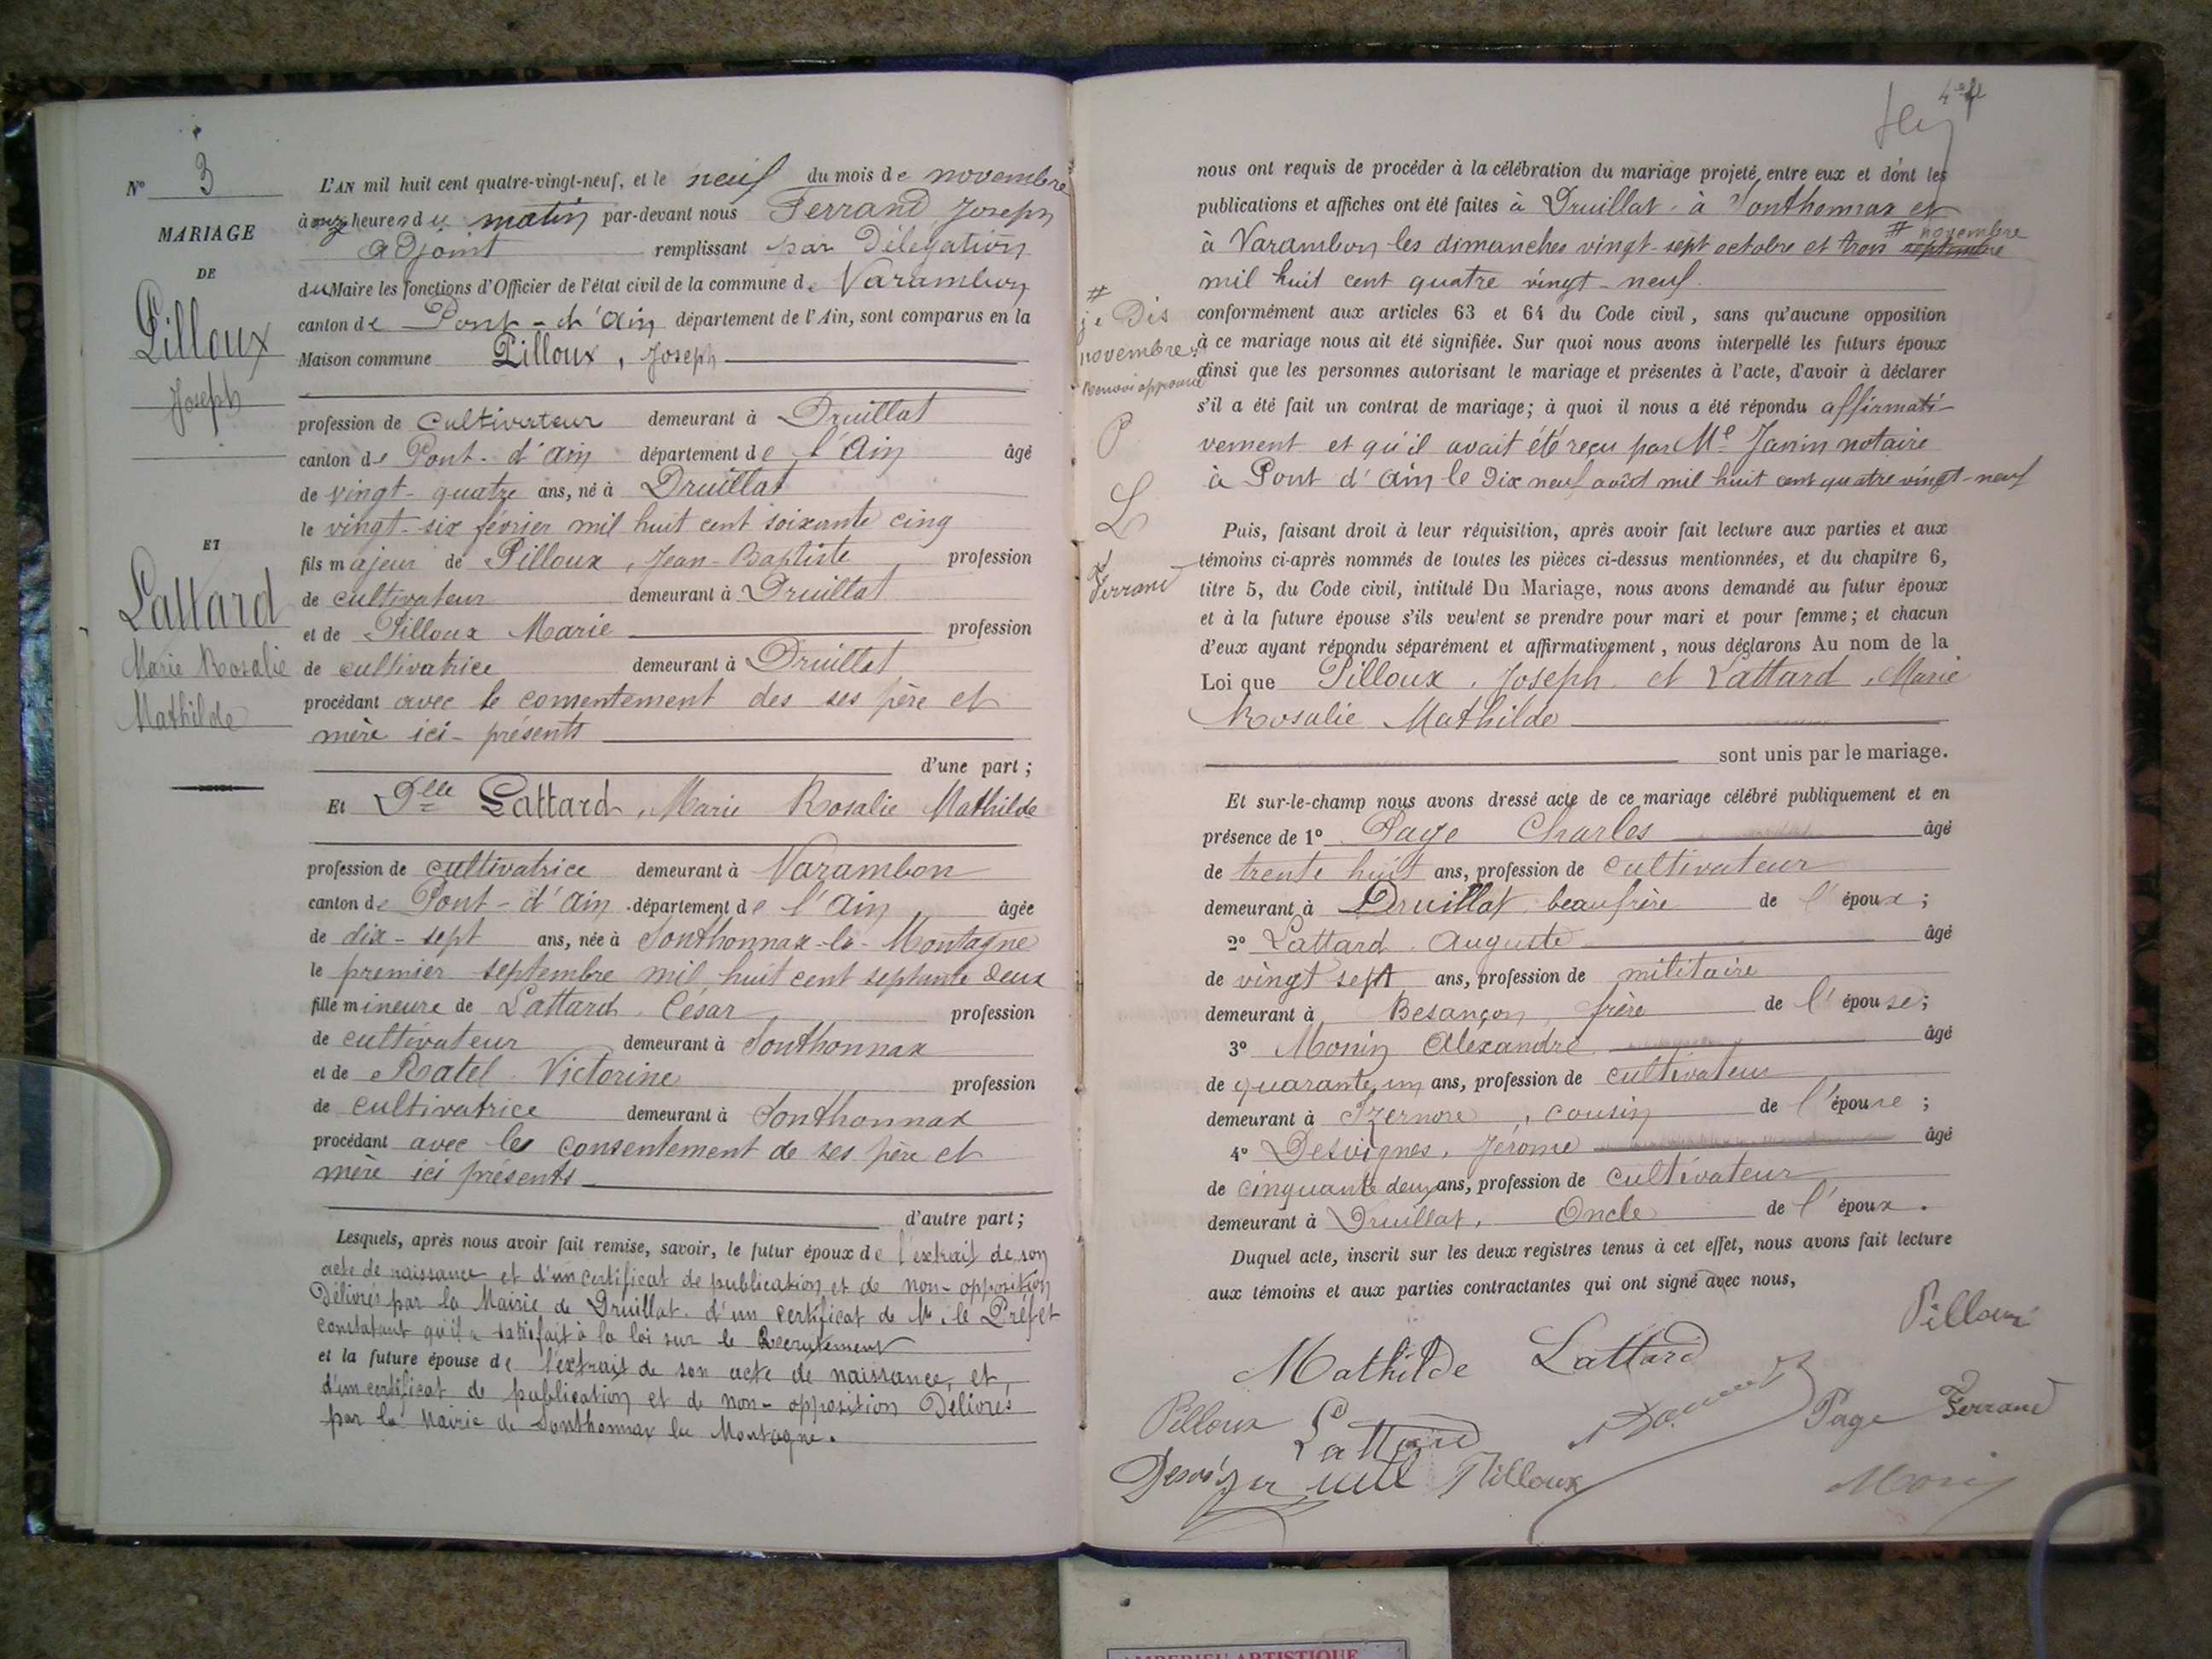 N° 3
MARIAGE
DE
Pilloux
Joseph
ET
Lattard
Marie Rosalie
Mathilde
L'AN mil huit cent quatre-vingt-neuf, et le neuf du mois de novembre
à onze heures du matin par-devant nous Ferrand Joseph
adjoint remplissant par délégation
du Maire les fonctions d'Officier de l'état civil de la commune de Varambon
canton de Pont-d'Ain département de l'Ain, sont comparus en la
Maison commune Pilloux, Joseph
profession de cultivateur demeurant à Druillat
canton de Pont-d'Ain département de l'Ain âgé
de vingt-quatre ans, né à Druillat
le vingt-six février mil huit cent soixante cinq
fils majeur de Pilloux, Jean-Baptiste profession
de cultivateur demeurant à Druillat
et de Pilloux Marie profession
de cultivatrice demeurant à Druillat
procédant avec le consentement des ses père et
mère ici-présents
d'une part;
Et Dlle Lattard, Marie Rosalie Mathilde
profession de cultivatrice demeurant à Varambon
canton de Pont-d'Ain département de l'Ain âgée
de dix-sept ans, née à Sonthonnax-la-Montagne
le premier septembre mil huit cent septante deux
fille mineure de Lattard César profession
de cultivateur demeurant à Sonthonnax
et de Ratel Victorine profession
de cultivatrice demeurant à Sonthonnax
procédant avec le consentement de ses père et
mère ici présents
d'autre part;
Lesquels, après nous avoir fait remise, savoir, le futur époux de l'extrait de son
acte de naissance et d'un certificat de publication et de non-opposition
délivrés par la Mairie de Druillat. d'un certificat de Mr. le Préfet
constatant qu'il a satisfait à la loi sur le Recrutement
et la future épouse de l'extrait de son acte de naissance, et
d'un certificat de publication et de non-opposition délivrés
par la Mairie de Sonthonnax la Montagne.
4e
nous ont requis de procéder à la célébration du mariage projeté entre eux et dont les
publications et affiches ont été faites à Druillat à Sonthonnax et
# novembre
à Varambon les dimanches vingt-sept octobre et trois septembre
mil huit cent quatre vingt-neuf.
#
je dis
novembre
Renvoi approuvé
P
L
Ferrand
conformément aux articles 63 et 64 du Code civil, sans qu'aucune opposition
à ce mariage nous ait été signifiée. Sur quoi nous avons interpellé les futurs époux
ainsi que les personnes autorisant le mariage et présentes à l'acte, d'avoir à déclarer
s'il a été fait un contrat de mariage; à quoi il nous a été répondu affirmati-
vement et qu'il avait été reçu par Me Janin notaire
à Pont d'Ain le dix neuf août mil huit cent quatre vingt-neuf
Puis, faisant droit à leur réquisition, après avoir fait lecture aux parties et aux
témoins ci-après nommés de toutes les pièces ci-dessus mentionnées, et du chapitre 6,
titre 5, du Code civil, intitulé Du Mariage, nous avons demandé au futur époux
et à la future épouse s'ils veulent se prendre pour mari et pour femme; et chacun
d'eux ayant répondu séparément et affirmativement, nous déclarons Au nom de la
Loi que Pilloux, Joseph et Lattard, Marie
Rosalie Mathilde
sont unis par le mariage.
Et sur-le-champ nous avons dressé acte de ce mariage célébré publiquement et en
présence de 1° Page Charles âgé
de trente huit ans, profession de cultivateur
demeurant à Druillat, beaufrère de l'époux;
2° Lattard Auguste âgé
de vingt sept ans, profession de militaire
demeurant à Besançon, frère de l'épouse;
3° Monin Alexandre âgé
de quarante un ans, profession de cultivateur
demeurant à Izernore, cousin de l'épouse;
4° Desvignes, Jérome âgé
de cinquante deux ans, profession de cultivateur
demeurant à Druillat, Oncle de l'époux.
Duquel acte, inscrit sur les deux registres tenus à cet effet, nous avons fait lecture
aux témoins et aux parties contractantes qui ont signé avec nous,
Pilloux
Mathilde Lattard
Pilloux Lattard Page Ferrand
Pilloux
AMBERIEU ARTISTIQUE